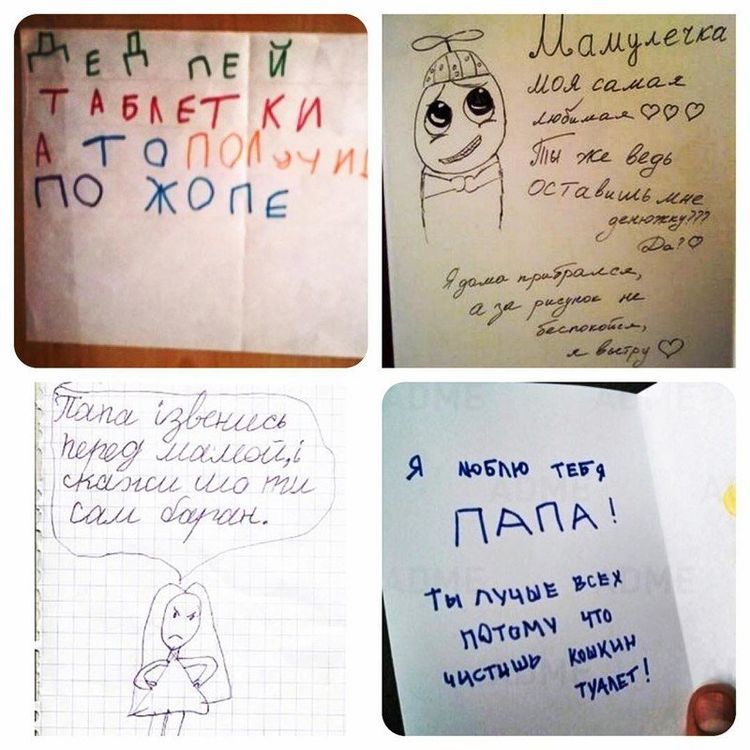 ДЕД ПЕЙ
ТАБЛЕТКИ
А ТО ПОЛУЧИШ
ПО ЖОПЕ
Мамулечка
моя самая
любимая ♡♡♡
Ты же ведь
оставишь мне
денюжку???
Да?♡
Я дома прибрался,
а за рисунок не
беспокойся,
я вытру ♡
Папа ізвенись
перед мамой,і
скажи шо ти
сам баран.
Я люблю тебя
ПАПА!
Ты лучше всех
потому что
чистишь кошкин
туалет!